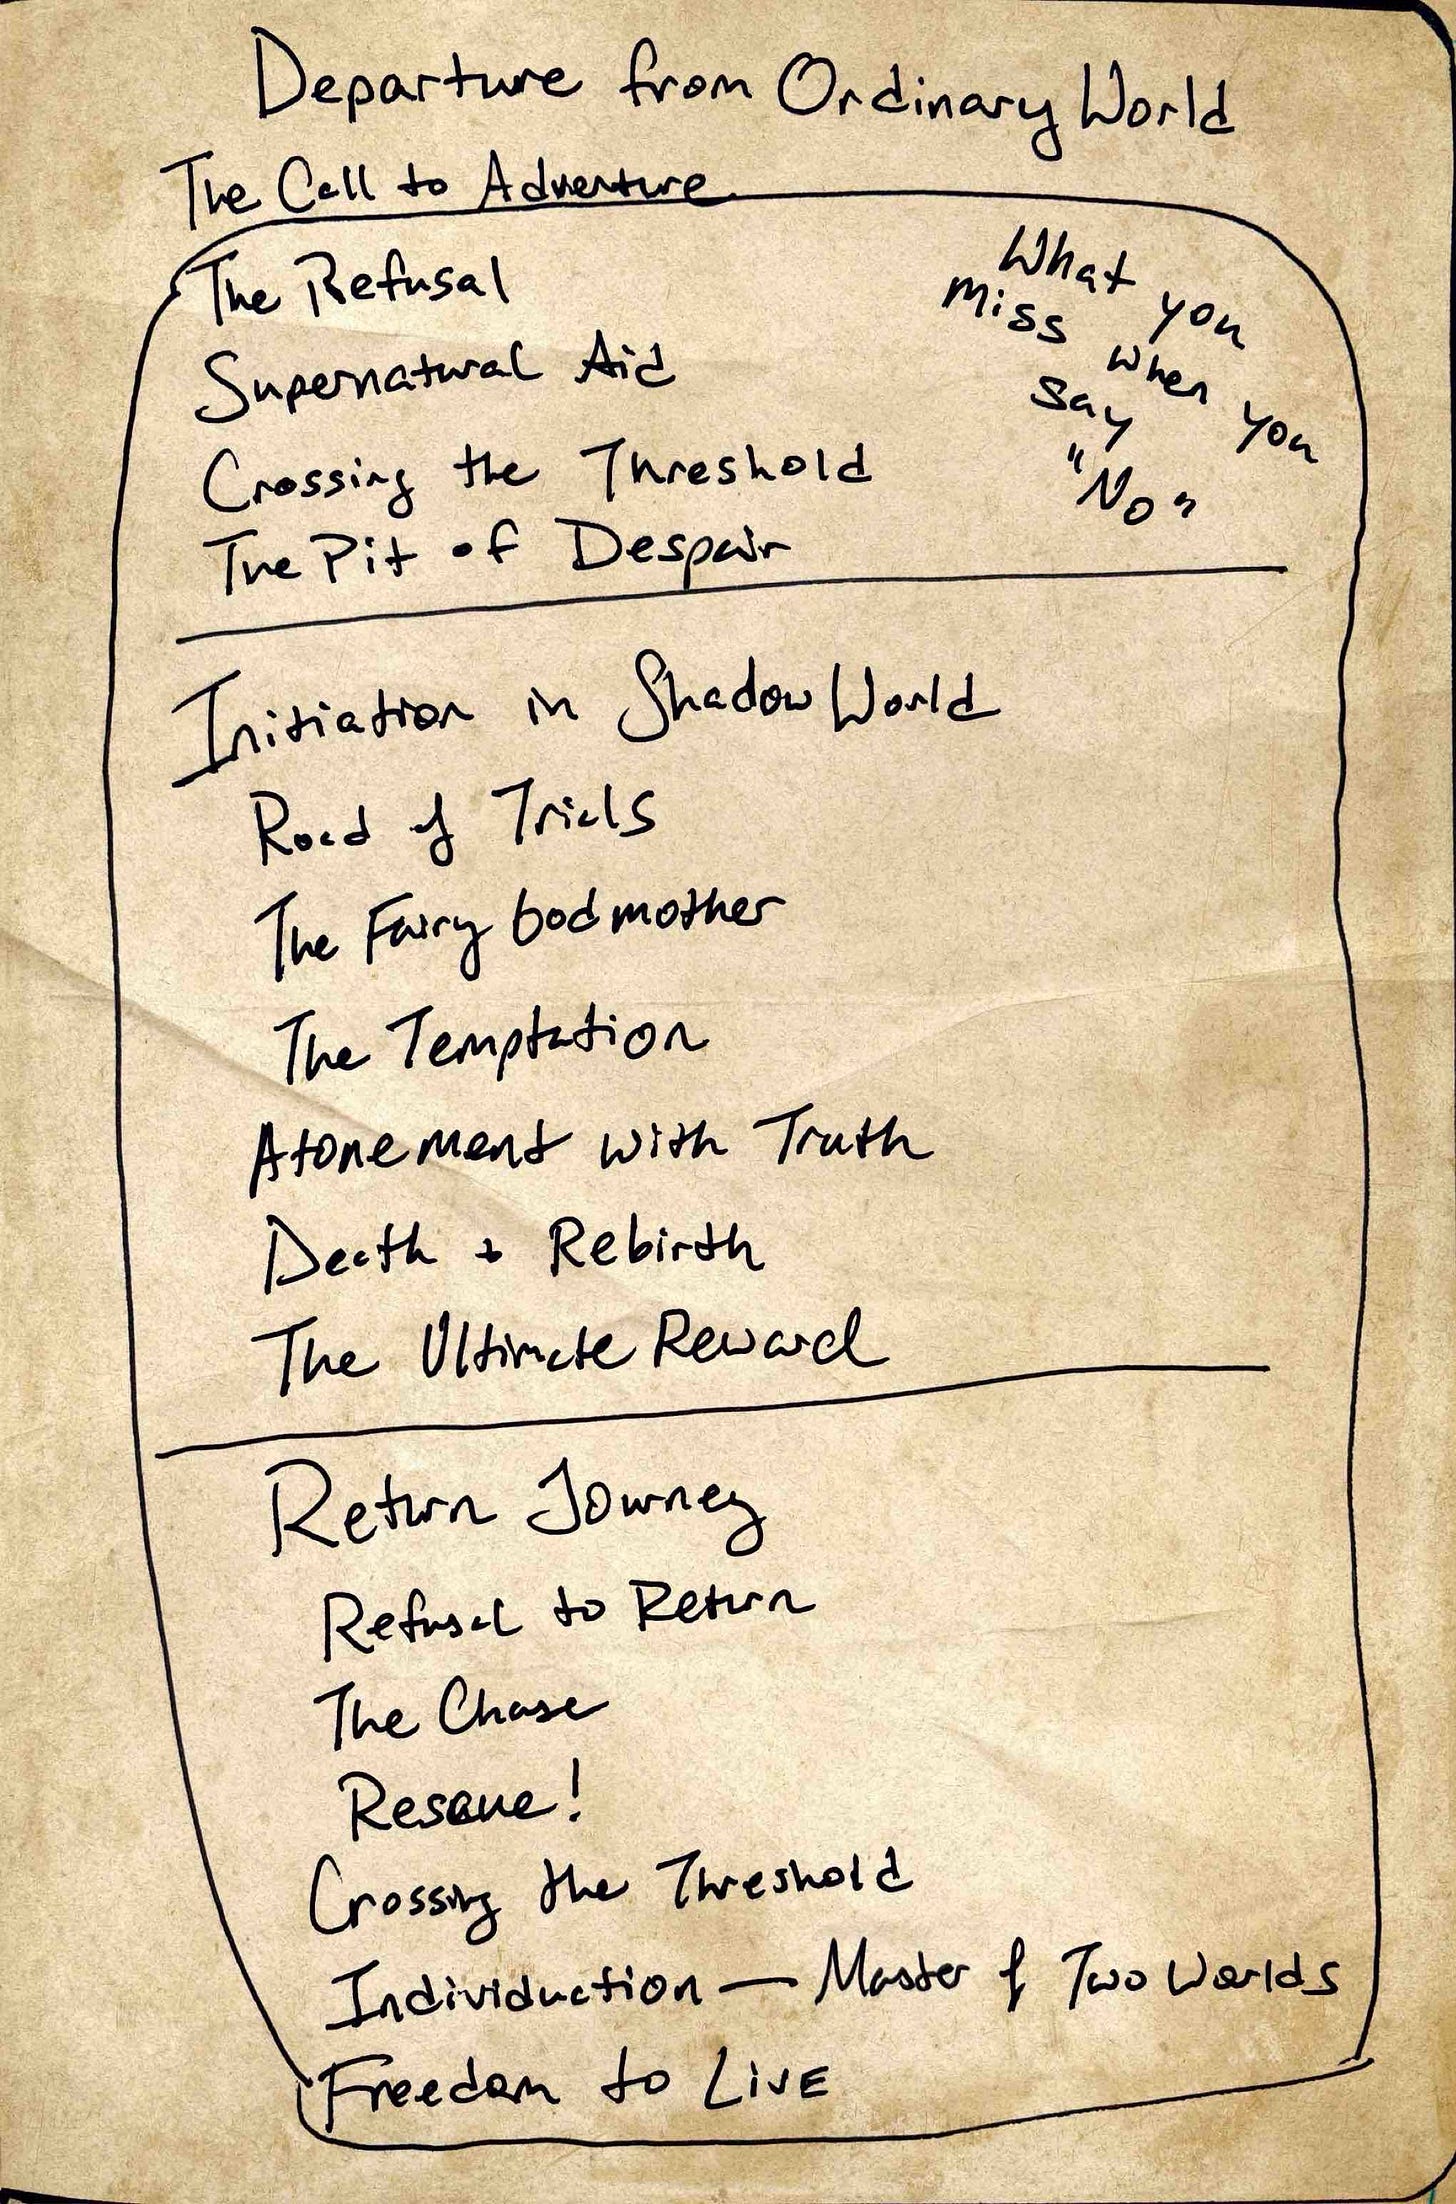 Departure from Ordinary World
The Call to Adventure
The Refusal
Supernatural Aid
Crossing the Threshold
The Pit of Despair
What you
miss when you
say
"No"
Initiation in Shadow World
Road of Trials
The Fairy Godmother
The Temptation
Atonement with Truth
Death + Rebirth
The Ultimate Reward
Return Journey
Refusal to Return
The Chase
Rescue!
Crossing the Threshold
Individuation — Master of Two Worlds
Freedom to Live